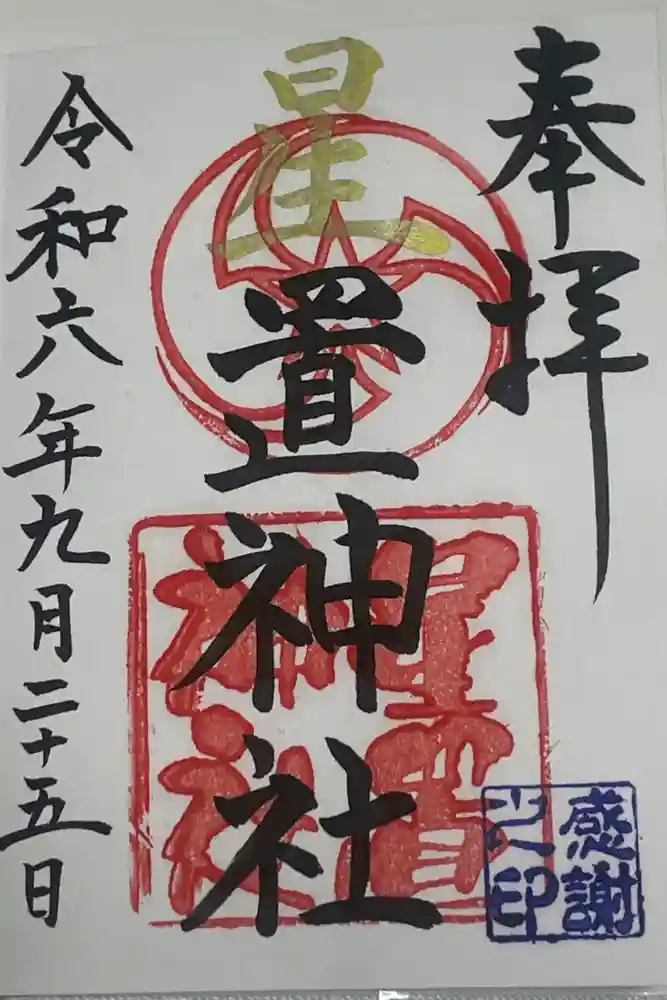 奉拝
星置神社
令和六年九月二十五日
星置神社
感謝之印